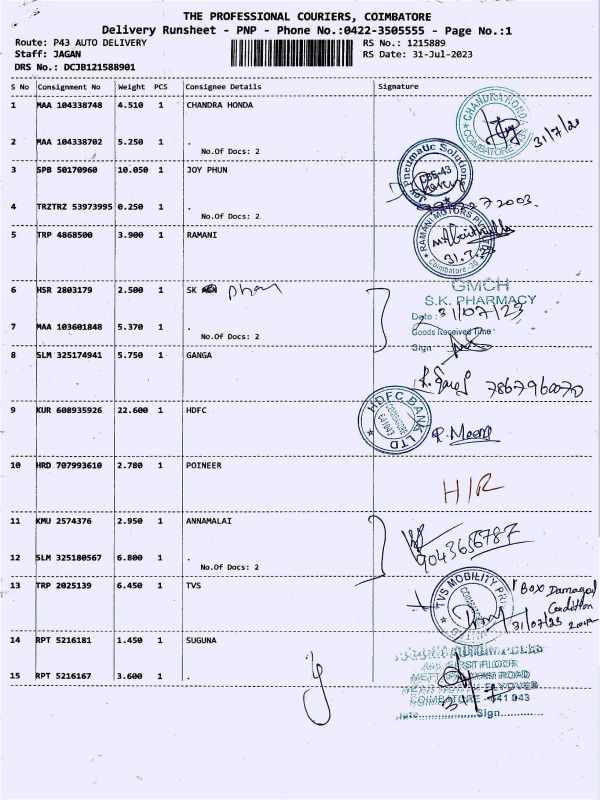 THE PROFESSIONAL COURIERS, COIMBATORE
Delivery Runsheet - PNP - Phone No.:0422-3505555 - Page No.:1
Route: P43 AUTO DELIVERY RS No.: 1215889
Staff: JAGAN RS Date: 31-Jul-2023
DRS No.: DCJB121588901
S No Consignment No Weight PCS Consignee Details Signature
1 MAA 104338748 4.510 1 CHANDRA HONDA
CHANDRA HONDA
COIMBATORE
31/7/23
2 MAA 104338702 5.250 1 .
No.Of Docs: 2
3 SPB 50170960 10.050 1 JOY PHUN
Joy Pneumatic Solutions
4 TRZTRZ 53973995 0.250 1 .
No.Of Docs: 2
5 TRP 4868500 3.900 1 RAMANI
RAMANI MOTORS PVT LTD
31.7.23
Coimbatore
6 HSR 2803179 2.500 1 SK
GMCH
S.K. PHARMACY
Date : 31/07/23
7 MAA 103601848 5.370 1 .
Goods Received Time
No.Of Docs: 2
Sign
8 SLM 325174941 5.750 1 GANGA
7867960070
9 KUR 608935926 22.600 1 HDFC
HDFC BANK LTD
COIMBATORE
641043
10 HRD 707993610 2.780 1 POINEER
H/R
11 KMU 2574376 2.950 1 ANNAMALAI
9043656787
12 SLM 325180567 6.800 1 .
No.Of Docs: 2
13 TRP 2025139 6.450 1 TVS
TVS MOBILITY
Box Damaged
Condition
31/07/23
14 RPT 5216181 1.450 1 SUGUNA
FIRST FLOOR
ROAD
15 RPT 5216167 3.600 1 .
COIMBATORE - 641 043
31/7
Sign